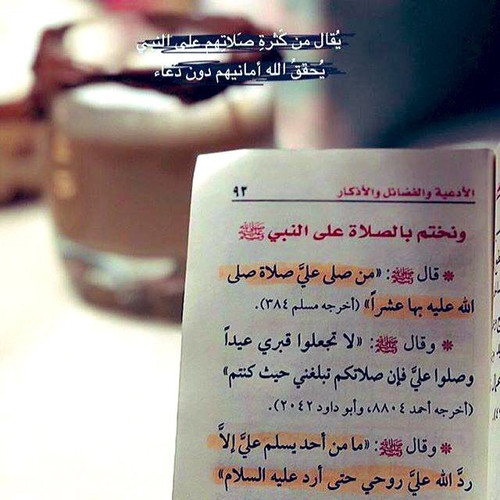 يُقال من كَثرةِ صَلاتهم على النبي
يُحققُ الله أمانيهم دون دُعاء
الأدعية والفضائل والأذكار ٩٣
ونختم بالصلاة على النبي ﷺ
* قال ﷺ: «من صلى عليَّ صلاة صلى
الله عليه بها عشراً» (أخرجه مسلم ٣٨٤).
* وقال ﷺ: «لا تجعلوا قبري عيداً
وصلوا عليَّ فإن صلاتكم تبلغني حيث كنتم»
(أخرجه أحمد ٨٨٠٤، وأبو داود ٢٠٤٢).
* وقال ﷺ: «ما من أحد يسلم عليَّ إلاَّ
ردَّ الله عليَّ روحي حتى أرد عليه السلام»